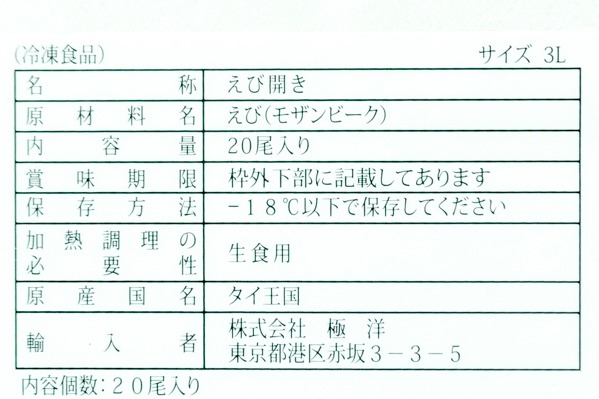 (冷凍食品) サイズ 3L
名称 えび開き
原材料名 えび(モザンビーク)
内容量 20尾入り
賞味期限 枠外下部に記載してあります
保存方法 −18℃以下で保存してください
加熱調理の
必要性 生食用
原産国名 タイ王国
輸入者 株式会社 極洋
東京都港区赤坂3−3−5
内容個数:20尾入り